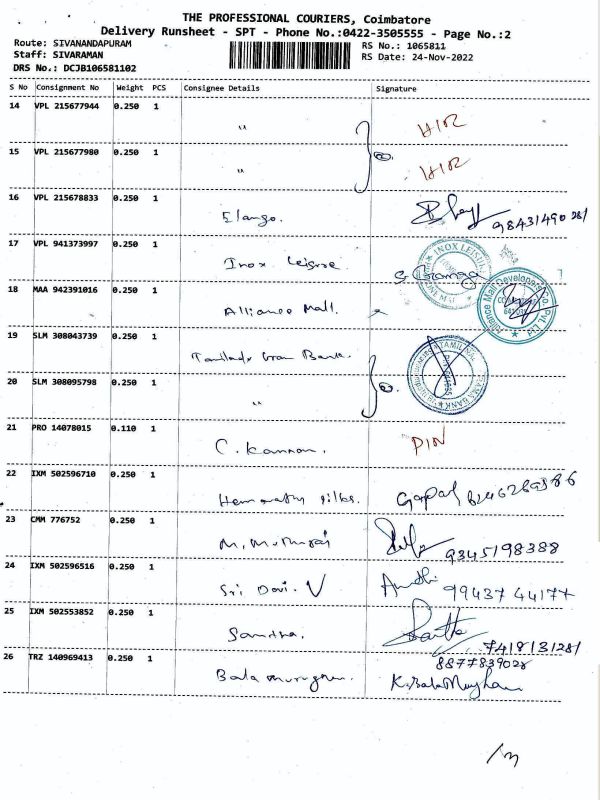 THE PROFESSIONAL COURIERS, Coimbatore
Delivery Runsheet - SPT - Phone No.:0422-3505555 - Page No.:2
Route: SIVANANDAPURAM RS No.: 1065811
Staff: SIVARAMAN RS Date: 24-Nov-2022
DRS No.: DCJB106581102
S No Consignment No Weight PCS Consignee Details Signature
14 VPL 215677944 0.250 1 "
15 VPL 215677980 0.250 1 "
16 VPL 215678833 0.250 1 Elango. 98431490281
17 VPL 941373997 0.250 1 Inox Leisure INOX LEISURE
18 MAA 942391016 0.250 1 Alliance Mall. Alliance Mall Developers Co. Pvt. Ltd
19 SLM 308043739 0.250 1 Bank. TAMIL NADU GRAMA BANK
20 SLM 308095798 0.250 1 "
21 PRO 14078015 0.110 1 C. Kannan. PIN
22 IXM 502596710 0.250 1 silks. Gopal
23 CMM 776752 0.250 1 9345198388
24 IXM 502596516 0.250 1 Sri Devi. V
25 IXM 502553852 0.250 1 7418131281
26 TRZ 140969413 0.250 1 8877839028
K. BalaMurughan